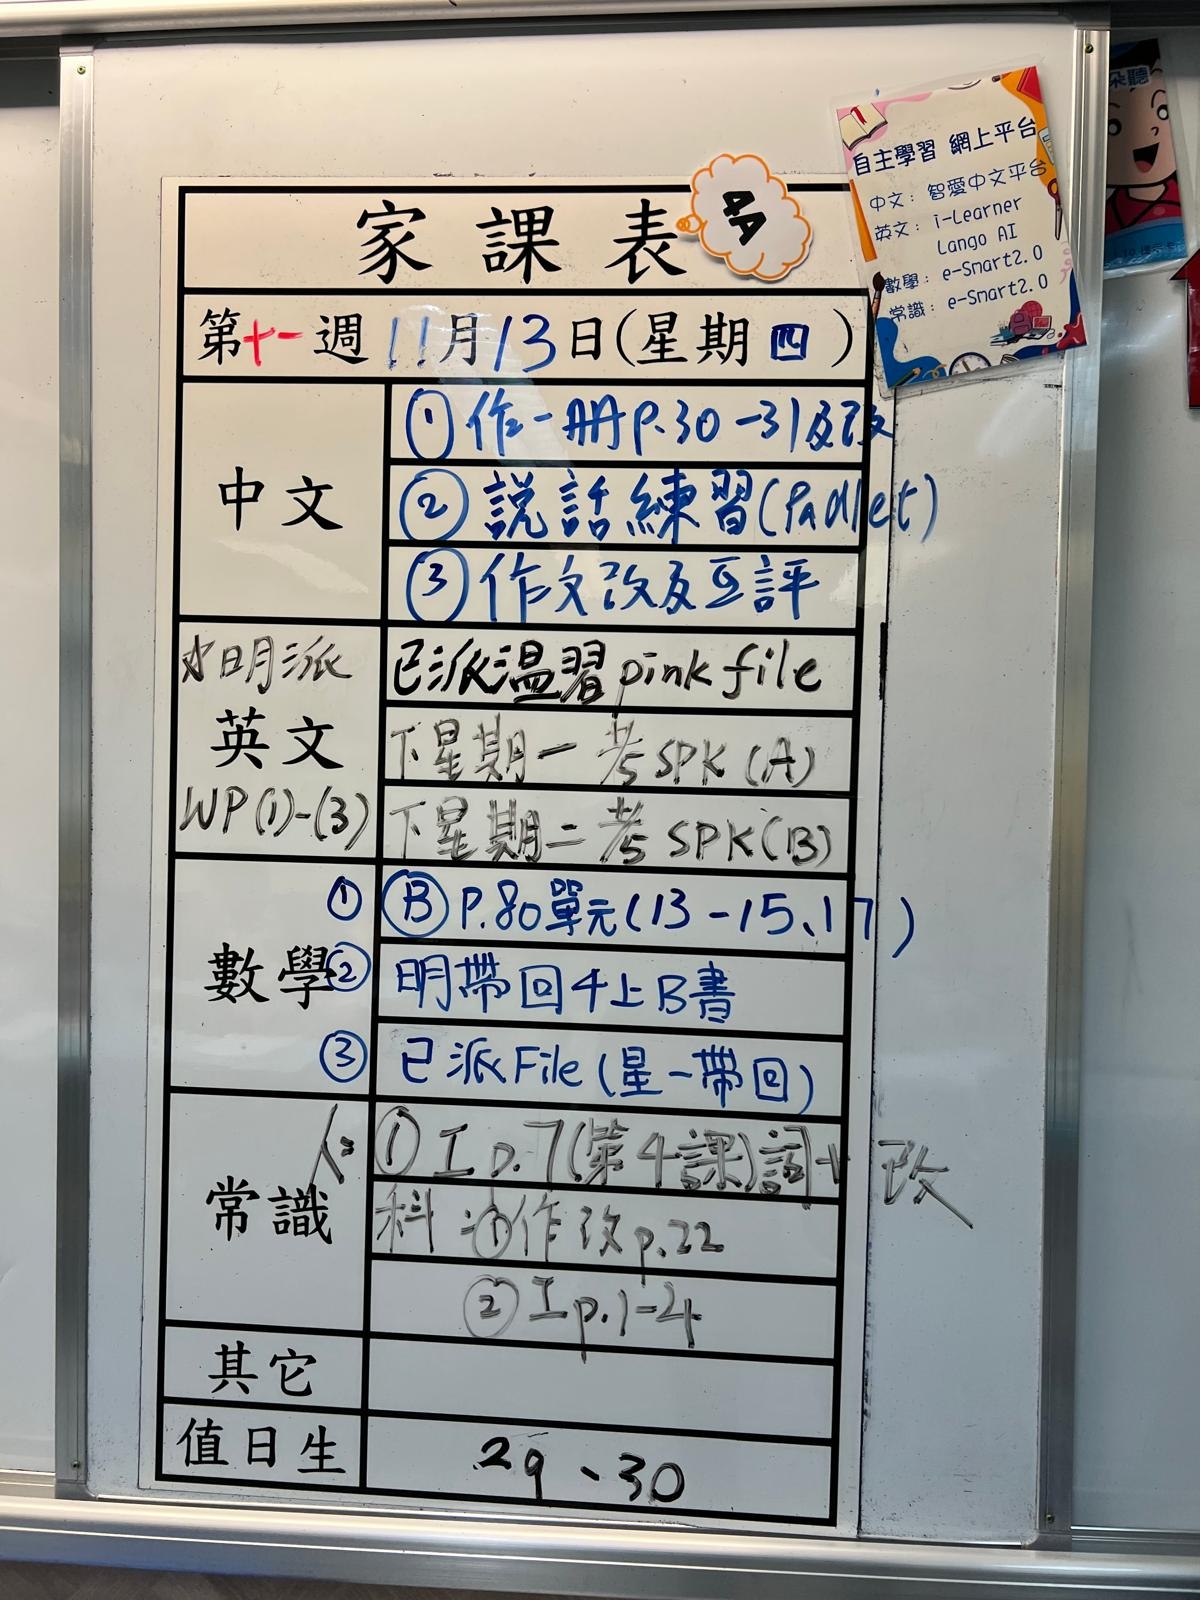 家課表 4A
第十一週 11月13日(星期四)
中文
① 作一冊P.30-31及改
② 説話練習(Padlet)
③ 作文改及互評
明派
英文
WP(1)-(3)
已派溫習pink file
下星期一考SPK(A)
下星期二考SPK(B)
數學
① Ⓑ P.80單元(13-15、17)
② 明帶回4上B書
③ 已派File(星一帶回)
常識
人: ① 工p.7(第4課)詞+改
科: ① 作改p.22
② 工p.1-4
其它
值日生
29、30
自主學習 網上平台
中文: 智愛中文平台
英文: i-Learner
Lango AI
數學: e-Smart2.0
常識: e-Smart2.0
朵聽